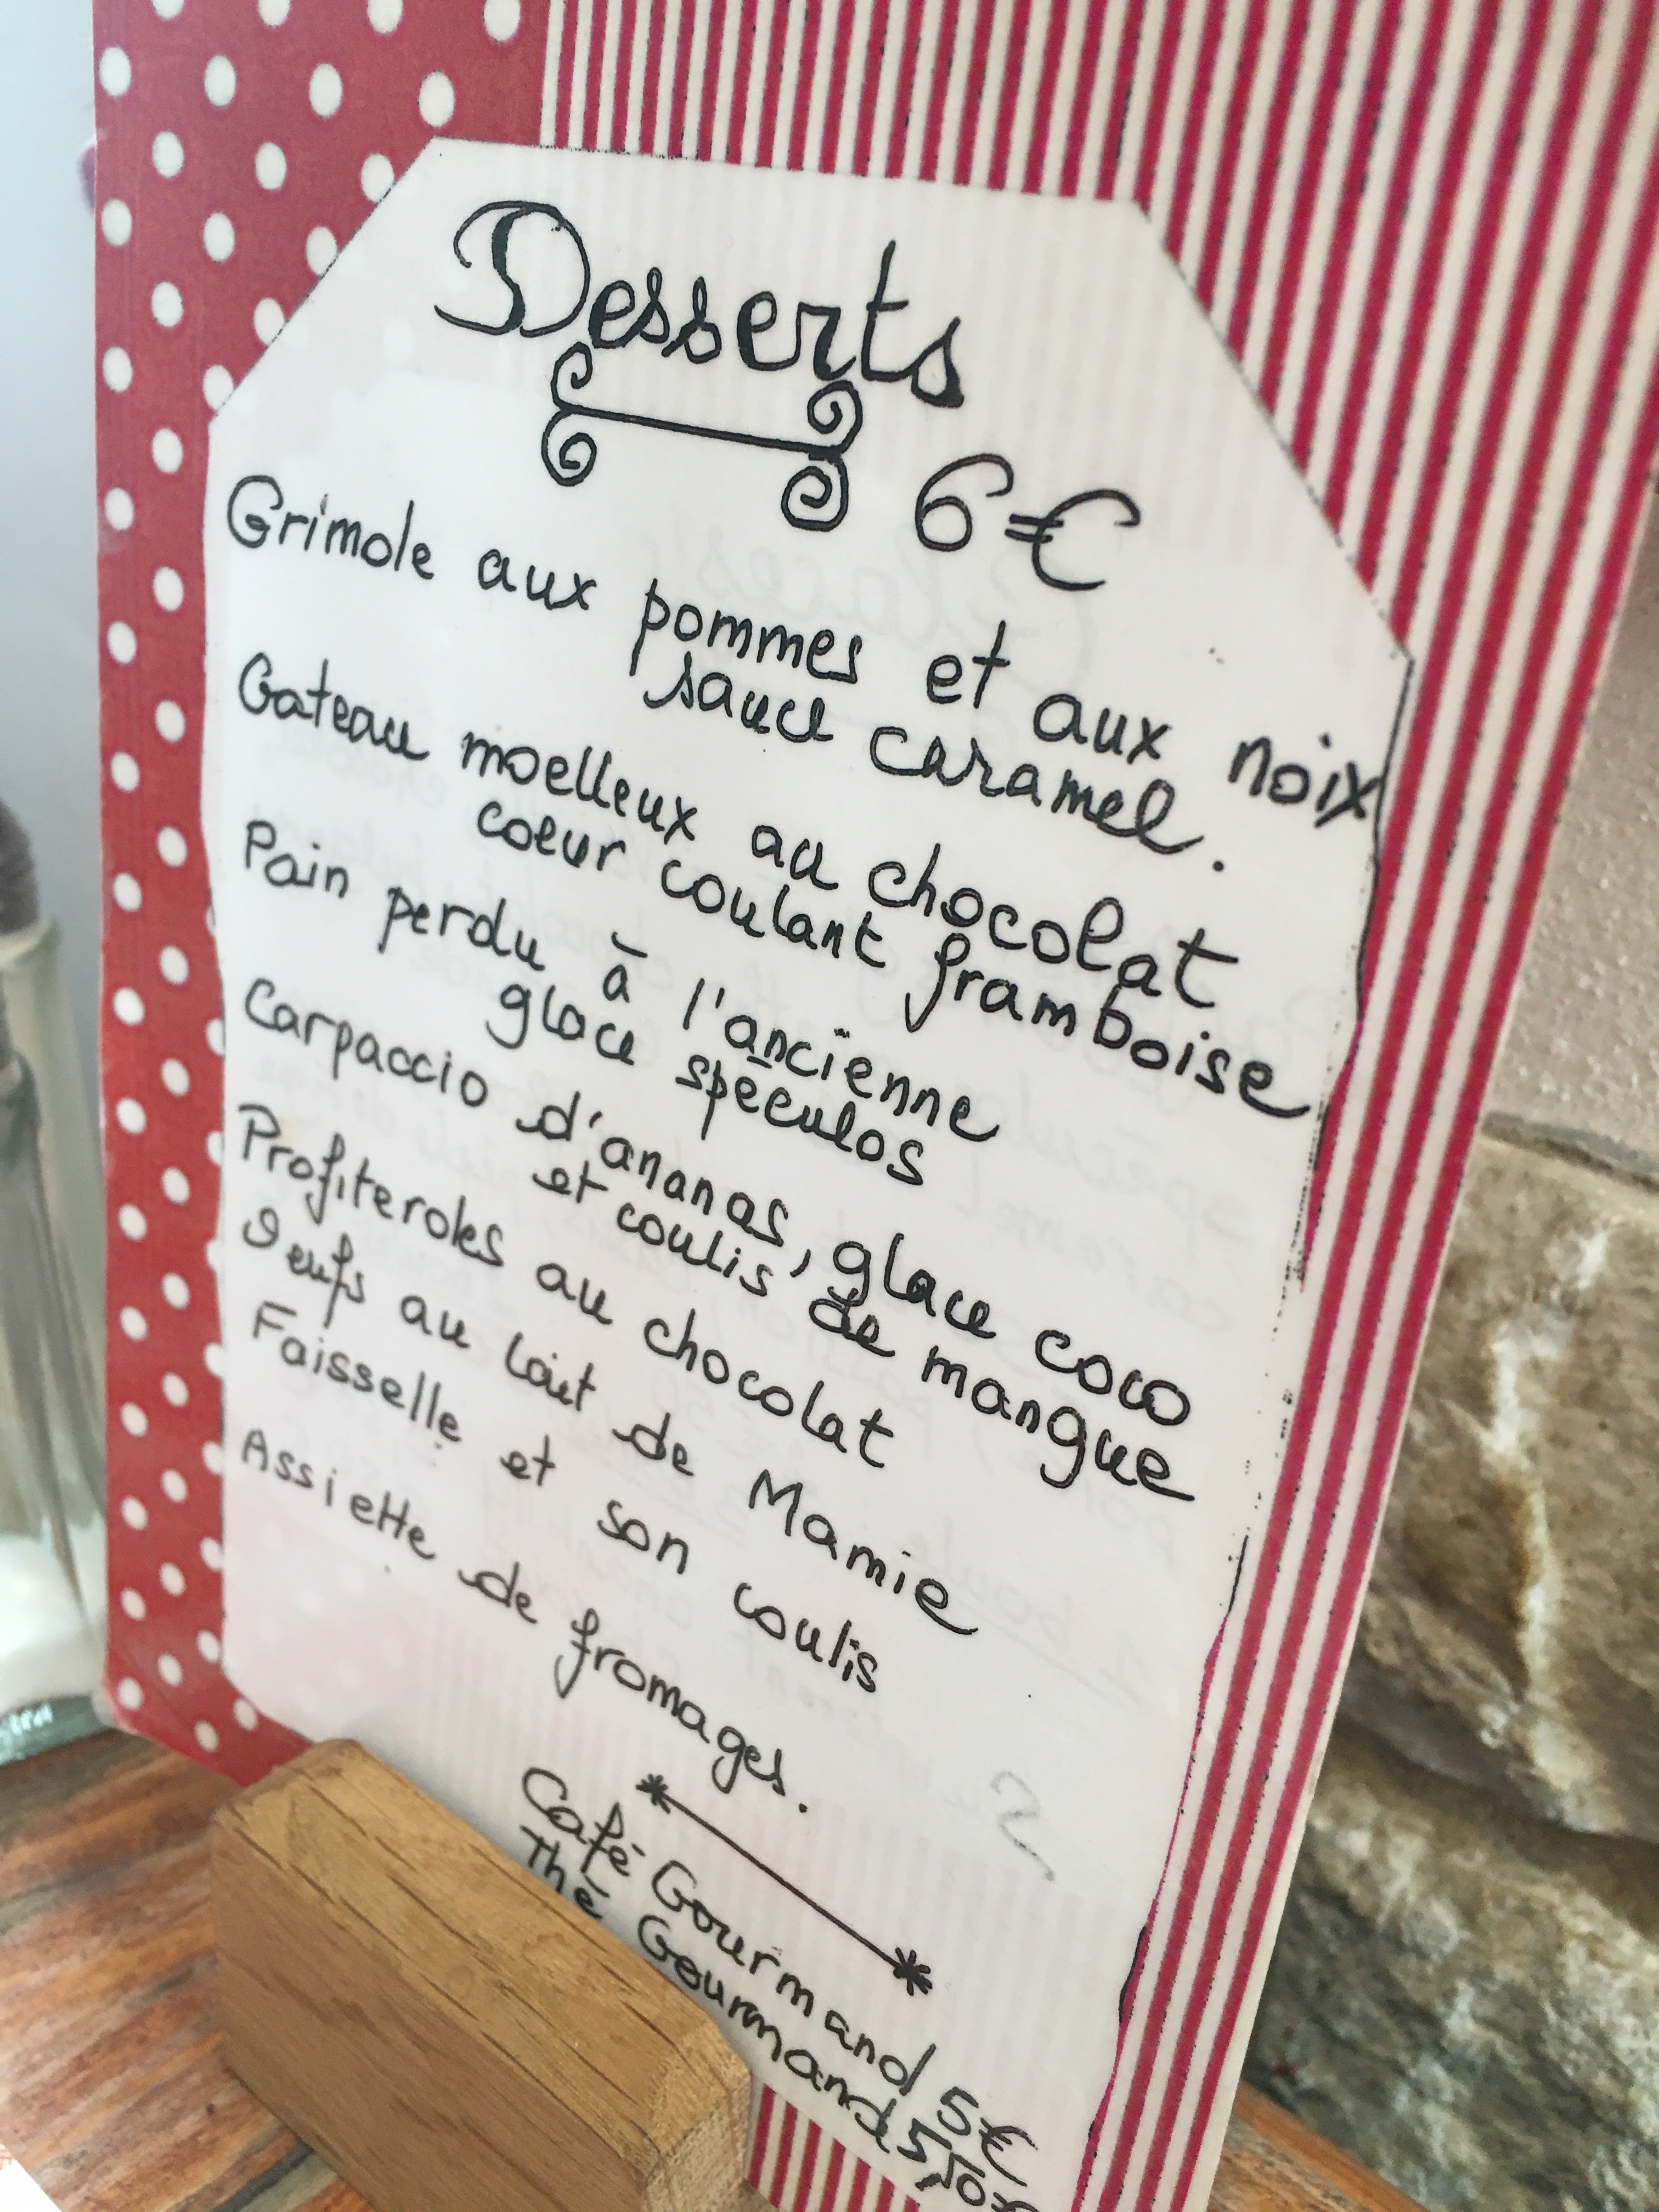 Desserts
6€
Grimole aux pommes et aux noix
sauce caramel.
Gateau moelleux au chocolat
coeur coulant framboise
Pain perdu à l'ancienne
glace speculos
Carpaccio d'ananas, glace coco
et coulis de mangue
Profiteroles au chocolat
Oeufs au lait de Mamie
Faisselle et son coulis
Assiette de fromages.
Café Gourmand 5€
Thé Gourmand 5,50€